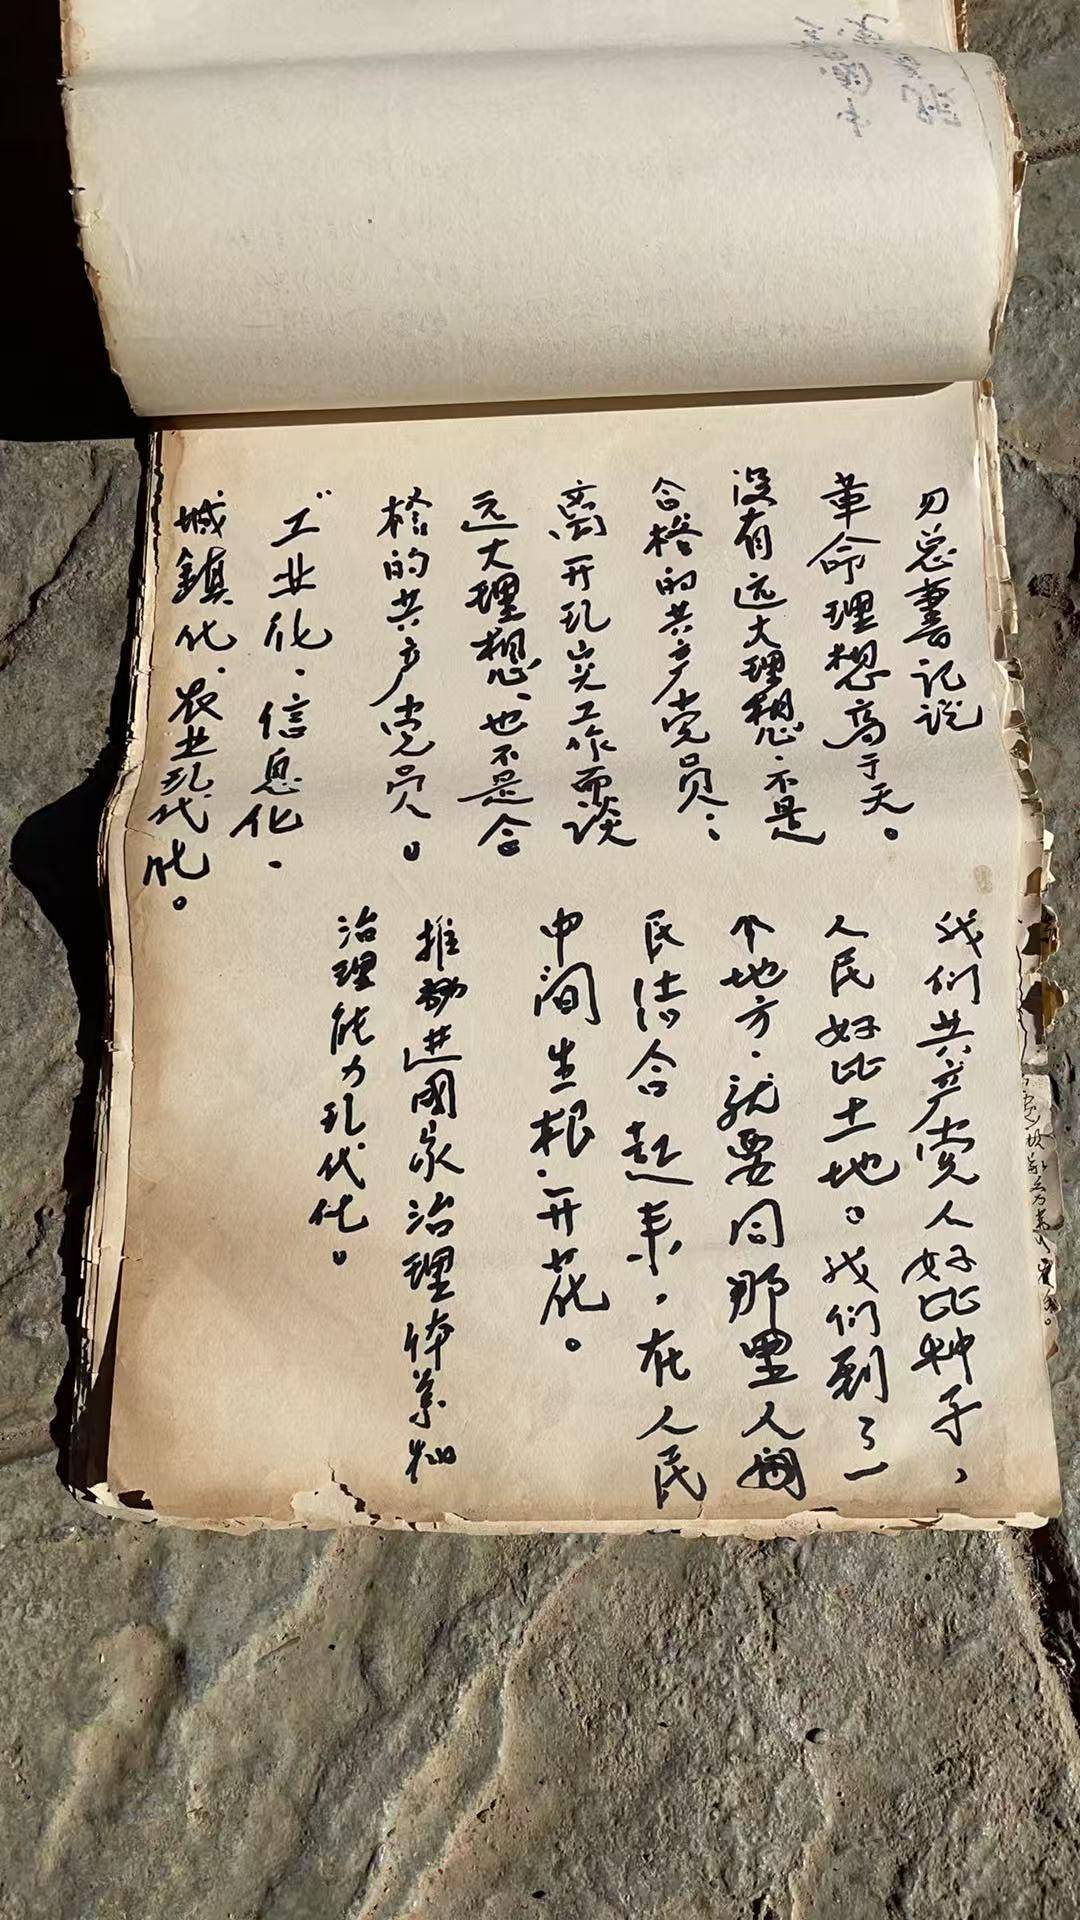 习总书记说
革命理想高于天。
没有远大理想、不是
合格的共产党员；
离开现实工作而谈
远大理想、也不是合
格的共产党员。
工业化、信息化、
城鎮化、农业现代化。
我们共产党人好比种子，
人民好比土地。我们到了一
个地方、就要同那里人
民结合起来，在人民
中间生根、开花。
推进国家治理体系和
治理能力现代化。